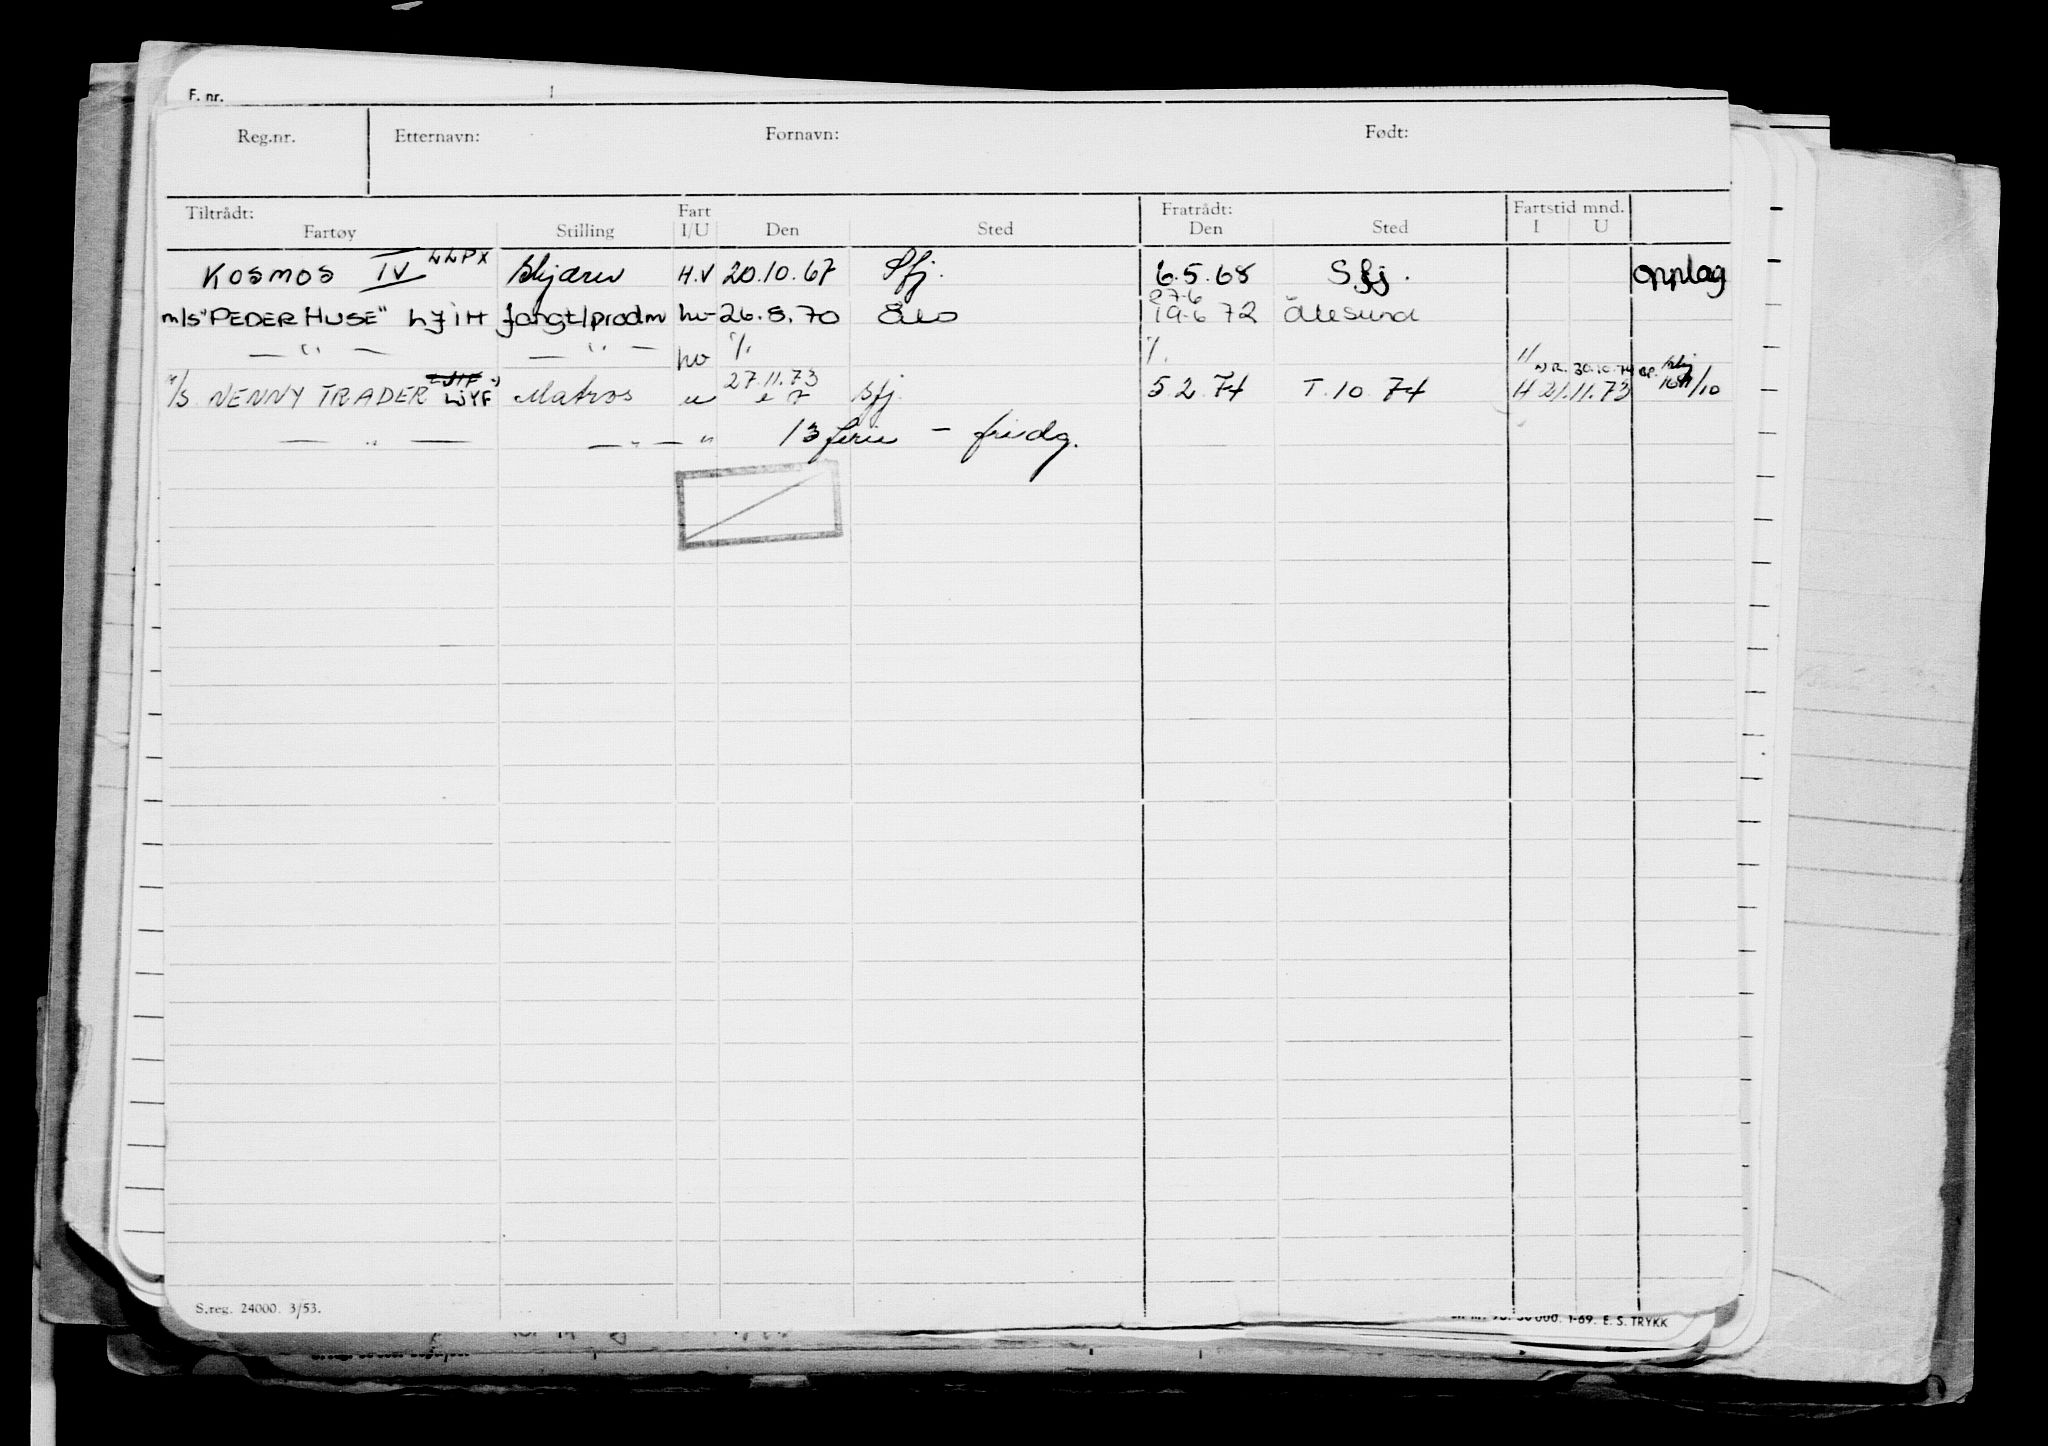 F. nr.
Reg.nr. Etternavn: Fornavn: Født:
Tiltrådt: Fart Fratrådt: Fartstid mnd.
Fartøy Stilling I/U Den Sted Den Sted I U
KOSMOS IV LLPX H.V 20.10.67 Sfj. 6.5.68 Sfj. opplag
27-6
m/s "PEDER HUSE" LJIH fangt/prodm hv 26.8.70 19-6 72 Ålesund
— " — — " — hv %. %. "
27.11.73 30.10.74
M/S NENNY TRADER LJYF Matros u Sfj. 5.2.74 T.10.74 H 21.11.73
— " — — " — " 13 ferie - fridg.
S.reg. 24000. 3/53.
000. 1-69. E. S. TRYKK